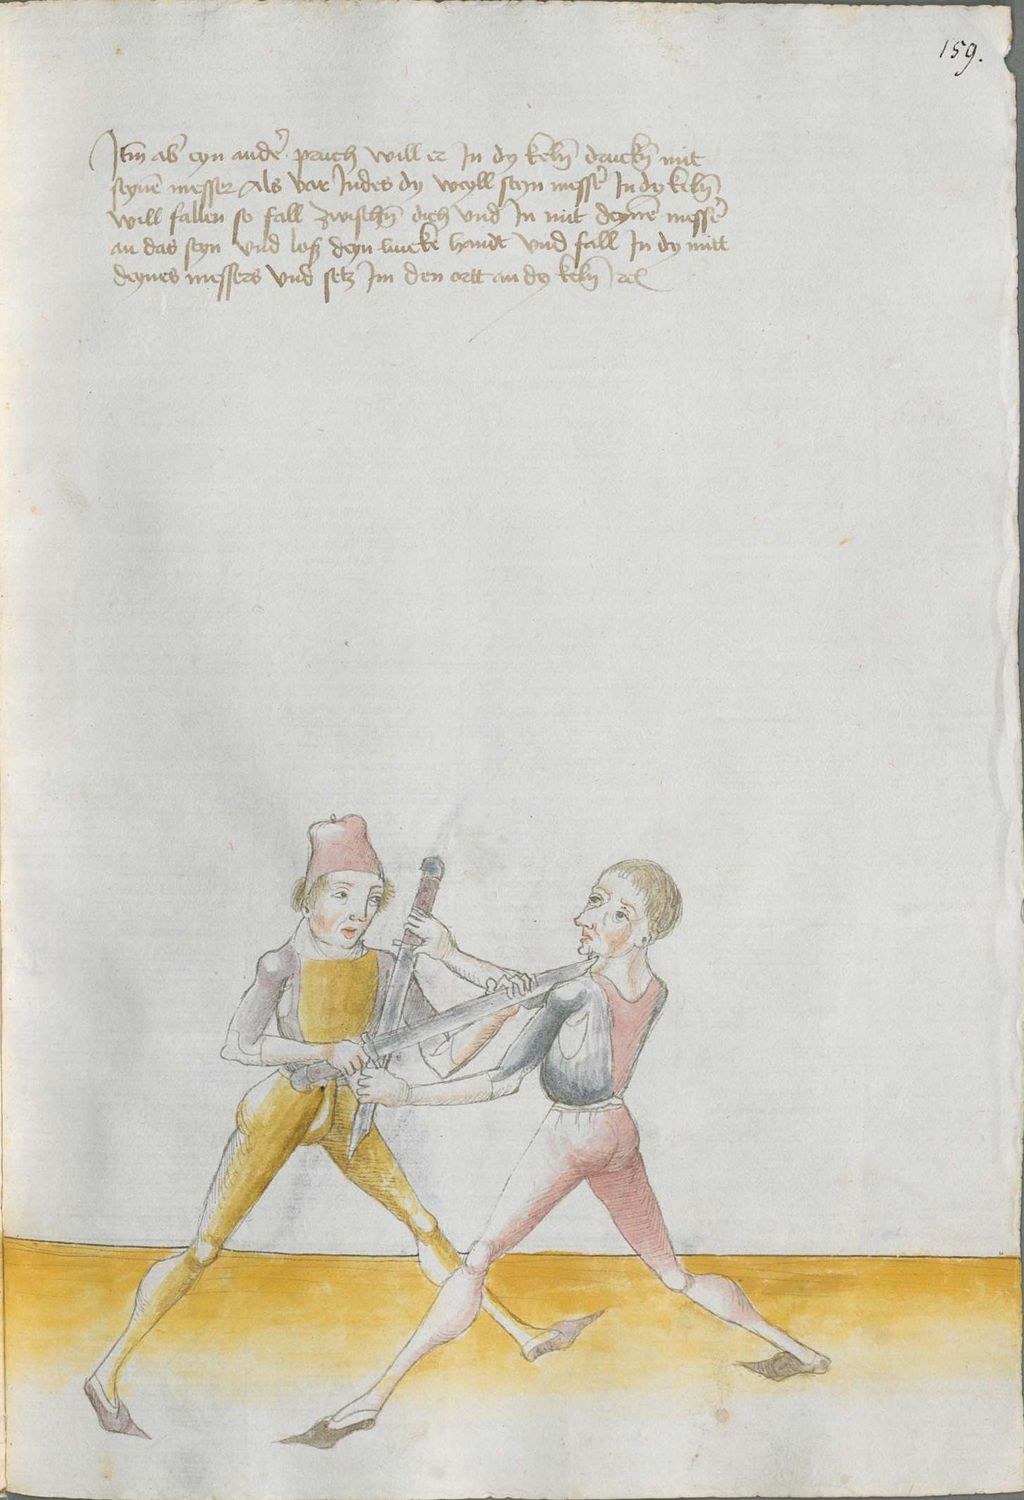 159.
Itm̄ ab' eyn ander pruch will er In dy keln̄ druckn̄ mit
seynē messer Als var Indes dy weyll seyn messer In dy keln̄
will fallen so fall zwischn̄ dich vnd In mit deynē messer
an das seyn vnd loß deyn lincke handt vnd fall In dy mitt
deynes messers vnd setz Im den ortt an dy keln̄ rc